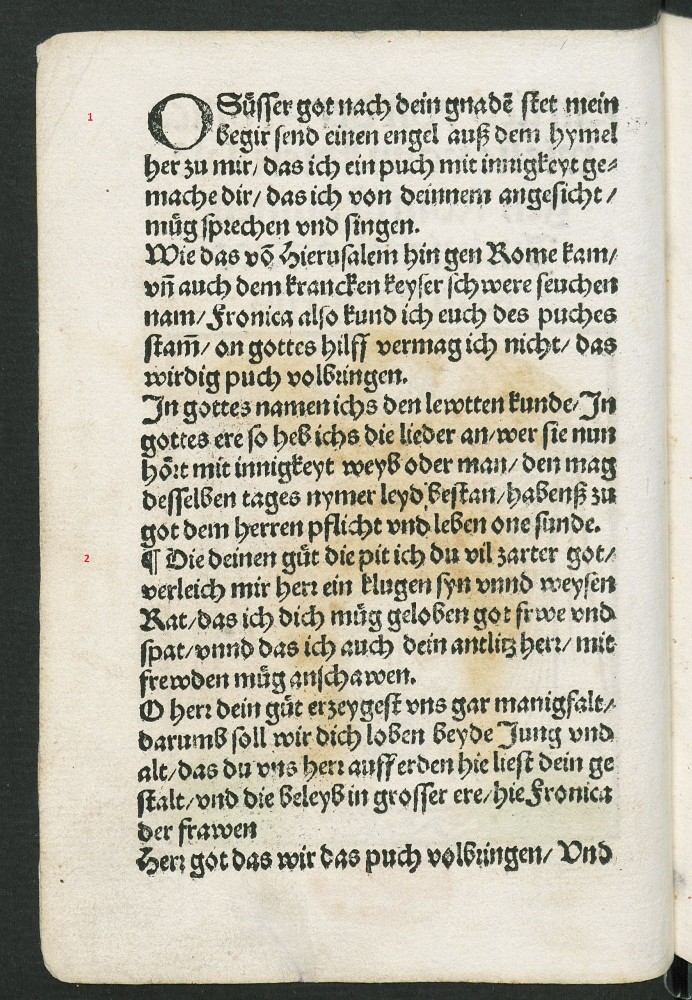 1
O Süsser got nach dein gnadē stet mein
2
begir send einen engel auß dem hymel
her zu mir/ das ich ein puch mit innigkeyt ge-
mache dir/ das ich von deinnem angesicht /
müg sprechen vnd singen.
Wie das vō Hierusalem hin gen Rome kam/
vn̄ auch dem krancken keyser schwere seuchen
nam/ Fronica also kund ich euch des puches
stam̄/ on gottes hilff vermag ich nicht/ das
wirdig puch volbringen.
In gottes namen ichs den lewtten kunde/ In
gottes ere so heb ichs die lieder an/ wer sie nun
hört mit innigkeyt weyb oder man/ den mag
desselben tages nymer leyd bestan/ habenß zu
got dem herren pflicht vnd leben one sunde.
¶ Die deinen güt die pit ich du vil zarter got/
verleich mir herr ein klugen syn vnnd weysen
Rat/ das ich dich müg geloben got frwe vnd
spat/ vnnd das ich auch dein antlitz herr/ mit
frewden müg anschawen.
O herr dein güt erzeygest vns gar manigfalt/
darumb soll wir dich loben beyde Jung vnd
alt/ das du vns herr auff erden hie liest dein ge
stalt/ vnd die beleyb in grosser ere/ hie Fronica
der frawen
Herr got das wir das puch volbringen/ Vnd